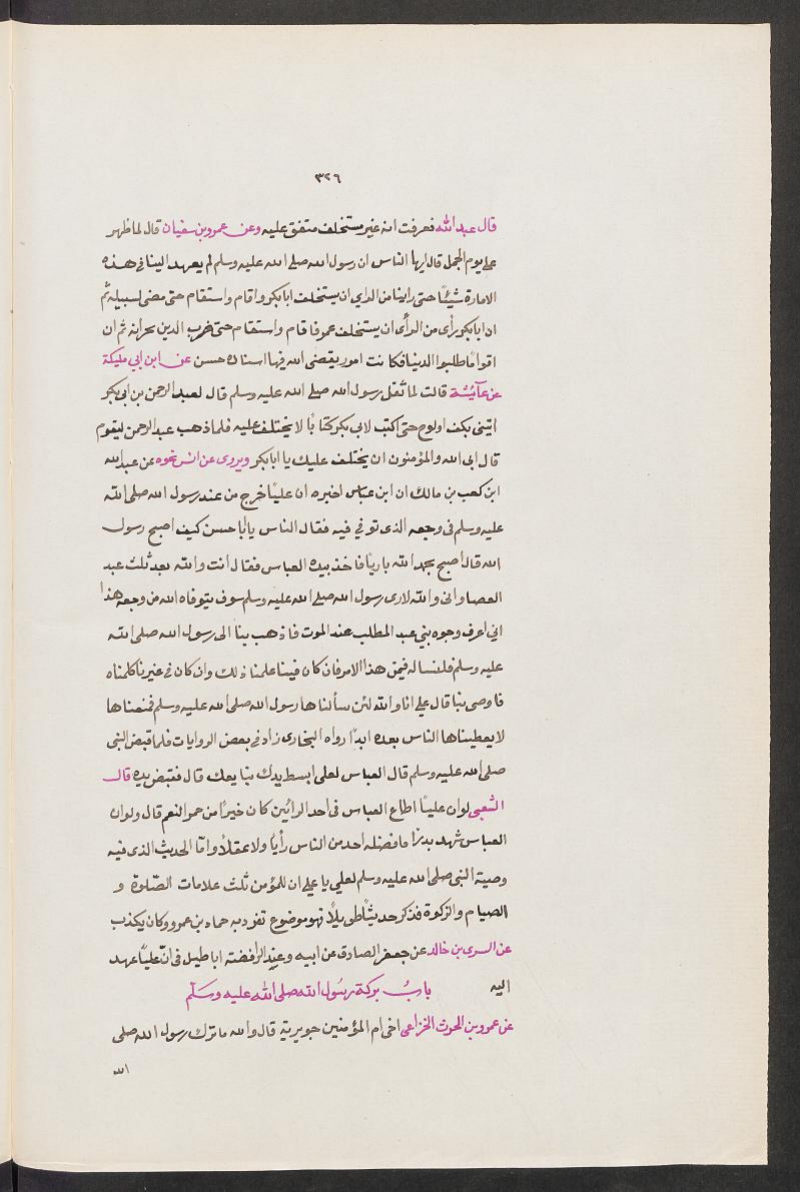 ٣٢٦
قال عبد الله فعرفت انه غير مستخلف متفق عليه وعن عمرو بن سفيان قال لما ظهر
علي يوم الجمل قال ايها الناس ان رسول الله صلى الله عليه وسلم لم يعهد الينا في هذه
الامارة شيئا حتى راينا من الراي ان يستخلف ابا بكر واقام واستقام حتى مضى لسبيله ثم
ان ابا بكر رأى من الرأى ان يستخلف عمر فاقام واستقام حتى ضرب الدين بجرانه ثم ان
اقواما طلبوا الدنيا فكانت امور يقضى الله فيها اسناده حسن عن ابن ابي مليكة
عن عآئشة قالت لما ثقل رسول الله صلى الله عليه وسلم قال لعبد الرحمن بن ابي بكر
ايتنى بكتف او لوح حتى اكتب لابي بكر كتابا لا يختلف عليه فلما ذهب عبد الرحمن ليقوم
قال ابى الله والمؤمنون ان يختلف عليك يا ابا بكر ويروى عن انس نحوه عن عبد الله
ابن كعب بن مالك ان ابن عباس اخبره ان عليا خرج من عند رسول الله صلى الله
عليه وسلم فى وجعه الذى توفي فيه فقال الناس يا أبا حسن كيف اصبح رسول
الله قال اصبح بحمد الله باريا فاخذ بيده العباس فقال انت والله بعد ثلث عبد
العصا وانى والله لارى رسول الله صلى الله عليه وسلم سوف يتوفاه الله من وجعه هذا
اني اعرف وجوه بني عبد المطلب عند الموت فاذهب بنا الى رسول الله صلى الله
عليه وسلم فلنساله فيمن هذا الامر فان كان فينا علمنا ذلك وان كان في غيرنا كلمناه
فاوصى بنا قال علي انا والله لئن سألناها رسول الله صلى الله عليه وسلم فمنعناها
لا يعطيناها الناس بعده ابدًا رواه البخارى زاد في بعض الروايات فلما قبض النبى
صلى الله عليه وسلم قال العباس لعلى ابسط يدك نبايعك قال فقبض يده قال
الشعبى لو ان عليًا اطاع العباس فى احد الرائين كان خيرًا من حمر النعم قال ولو ان
العباس شهد بدرًا ما فضله احد من الناس رأيًا ولا عقلاً واما الحديث الذى فيه
وصية النبى صلى الله عليه وسلم لعلي يا علي ان للمؤمن ثلث علامات الصّلوة و
الصيام والزكوة فذكر حديثًا طويلاً فهو موضوع تفرد به حماد بن عمرو وكان يكذب
عن السرى بن خالد عن جعفر الصادق عن ابيه وعند الرافضة اباطيل فى انّ عليّا عهد
اليه باب بركة رسول الله صلى الله عليه وسلم
عن عمرو بن الحرث الخزاعى اخى ام المؤمنين جويرية قال والله ما ترك رسول الله صلى
الله